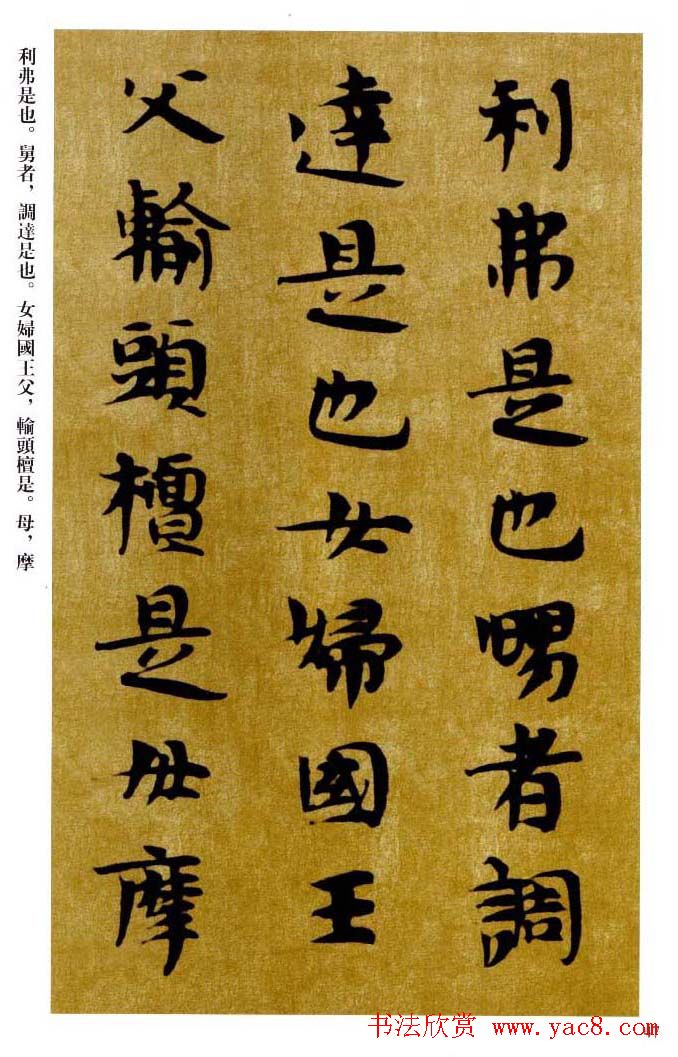 利弗是也甥者調
達是也女婦國王
父輸頭檀是母摩
利弗是也。舅者，調達是也。女婦國王父，輸頭檀是。母，摩
书法欣赏 www.yac8.com